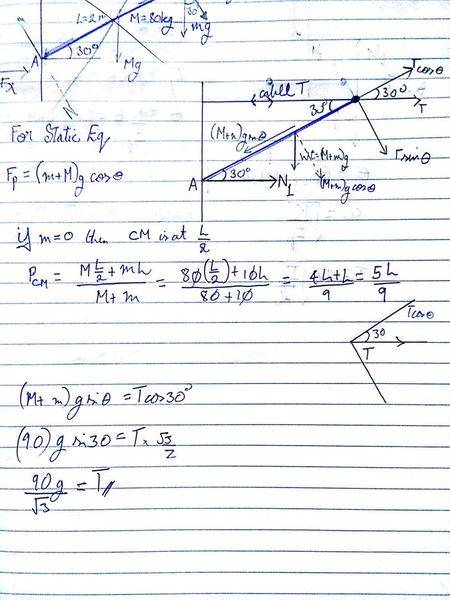 L=2m M=80kg 30
mg
A 30°
Mg
Fx
N
Tcosθ
cabell T
30° 30°
T
(M+m)gsinθ
Tsinθ
Wt=(M+m)g
A 30° N₁ (M+m)gcosθ
For Static Eq
Fp = (m+M)g cosθ
if m=0 then CM is at L/2
PCM = (M L/2 + mL)/(M+m) = (80(L/2)+10L)/(80+10) = (4L+L)/9 = 5L/9
Tcosθ
30
T
(M+m)g sinθ = Tcos30°
(90)g sin30 = T × √3/2
90g/√3 = T//